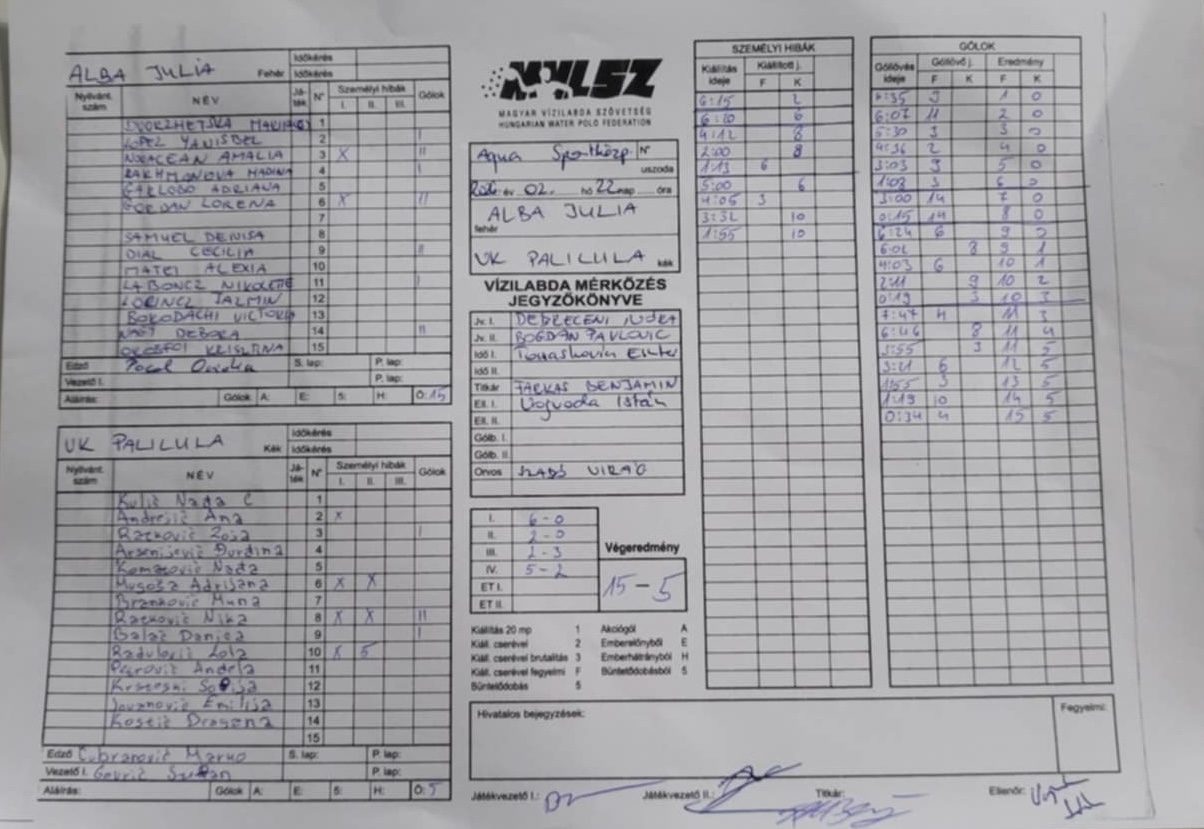 ALBA JULIA Fehér Időkérés
Időkérés
Nyilvánt. szám NÉV Játék N° Személyi hibák I. II. III. Gólok
1
LOPEZ YANISBEL 2 I
NORACEAN AMALIA 3 X II
RAKHMANOVA MADINA 4 I
GARLOBO ADRIANA 5
GORDAN LORENA 6 X II
7
SAMUEL DENISA 8
DIAL CECILIA 9 II
MATEI ALEXIA 10
LABONCZ NIKOLETTE 11 I
LORINCZ JAZMIN 12
BOKODACHI VICTORIA 13
NAGY DEBORA 14 II
KRISZTINA 15
Edző S. lap: P. lap:
Vezető I. P. lap:
Aláírás: Gólok A: E: 5: H: Ö: 15
UK PALILULA Kék Időkérés
Időkérés
Nyilvánt. szám NÉV Játék N° Személyi hibák I. II. III. Gólok
Kulič Nada C 1
Andrejič Ana 2 X
Ratković Zoja 3 I
Arsenijević Đurđina 4
Komatović Nada 5
Mugoša Adrijana 6 X X
Branković Muna 7
Ratković Nika 8 X X II
Balać Danica 9 I
Radulović Lola 10 X 5
Petrović Anđela 11
Sofija 12
Jovanović Emilija 13
Kostić Dragana 14
15
Edző Čubranović Marko S. lap: P. lap:
Vezető I. Gavrić P. lap:
Aláírás: Gólok A: E: 5: H: Ö: 5
MVLSZ
MAGYAR VÍZILABDA SZÖVETSÉG
HUNGARIAN WATER POLO FEDERATION
Aqua Sportközp. N°
uszoda
év 02. hó 22 nap óra
ALBA JULIA
fehér
UK PALILULA kék
VÍZILABDA MÉRKŐZÉS
JEGYZŐKÖNYVE
Jv. I. DEBRECENI
Jv. II. BOGDAN PAVLOVIC
Idő I. Eszter
Idő II.
Titkár FARKAS BENJAMIN
Ell. I. Vojvoda István
Ell. II.
Gólb. I.
Gólb. II.
Orvos SZABÓ VIRÁG
I. 6-0
II. 2-0
III. 2-3
IV. 5-2
ET I.
ET II.
Végeredmény
15-5
Kiállítás 20 mp 1 Akciógól A
Kiáll. cserével 2 Emberelőnyből E
Kiáll. cserével brutalitás 3 Emberhátrányból H
Kiáll. cserével fegyelmi F Büntetődobásból 5
Büntetődobás 5
SZEMÉLYI HIBÁK
Kiállítás ideje Kiállított j. F K
6:15 2
6:20 6
4:12 8
2:00 8
1:13 6
5:00 6
4:05 3
3:32 10
1:55 10
GÓLOK
Góllövés ideje Góllövő j. F K Eredmény F K
9 1 0
6:07 11 2 0
5:30 3 3 0
4:36 2 4 0
3:03 9 5 0
1:08 3 6 0
3:00 14 7 0
0:15 14 8 0
6:24 6 9 0
6:02 8 9 1
4:03 6 10 1
2:11 9 10 2
0:19 3 10 3
7:47 4 11 3
6:46 8 11 4
3:55 3 11 5
3:21 6 12 5
1:55 3 13 5
1:19 10 14 5
0:34 4 15 5
Hivatalos bejegyzések: Fegyelmi:
Játékvezető I.: Játékvezető II.: Titkár: Ellenőr: